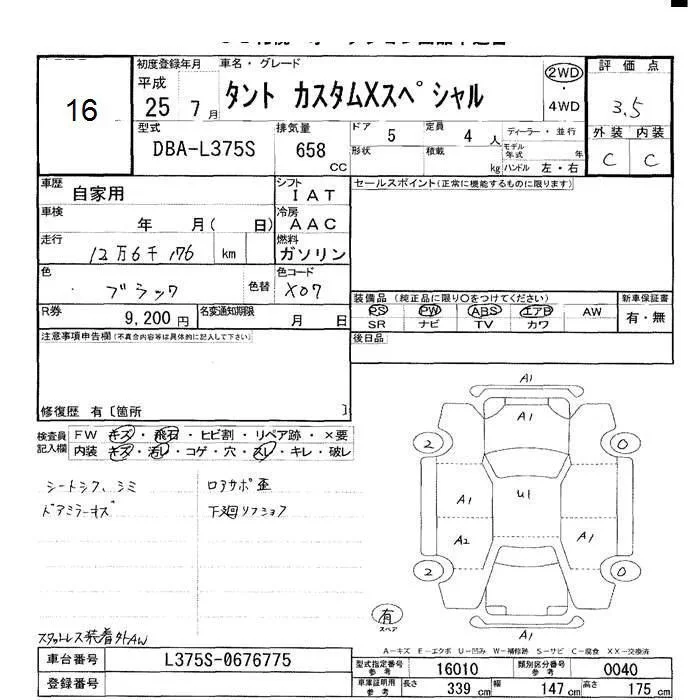 16
初度登録年月 車名・グレード
平成 25 7月 タント カスタムXスペシャル
2WD・4WD
評価点 3.5
外装 内装
C C
型式 DBA-L375S
排気量 658 CC
ドア 5 定員 4人
形状 積載 kg
ディーラー・並行
モデル年式 年
ハンドル 左・右
車歴 自家用
シフト IAT
車検 年 月( 日)
冷房 AAC
走行 12万6千176 km
燃料 ガソリン
色 ブラック 色替
色コード X07
R券 9,200円
名変通知期限 月 日
セールスポイント(正常に機能するものに限ります)
装備品 (純正品に限り○をつけてください)
PS PW ABS エアB AW
SR ナビ TV カワ
新車保証書
有・無
後日品
注意事項申告欄(不具合内容等は具体的に記入して下さい)
修復歴 有〔箇所 〕
検査員記入欄
FW キズ・飛石・ヒビ割・リペア跡・×要
内装 キズ・汚レ・コゲ・穴・スレ・キレ・破レ
シートシワ、シミ ロアサポ歪
ドアミラーキズ 下廻リフショク
スタットレス装着外AW
A1
A1
2 0
A1 U1
A2 A1
2 0
A1
有
スペア
A-キズ E-エクボ U-凹み W-補修跡 S-サビ C-腐食 XX-交換済
車台番号 L375S-0676775
登録番号
型式指定番号参考 16010
類別区分番号参考 0040
車庫証明用参考 長さ 339 cm 幅 147 cm 高さ 175 cm